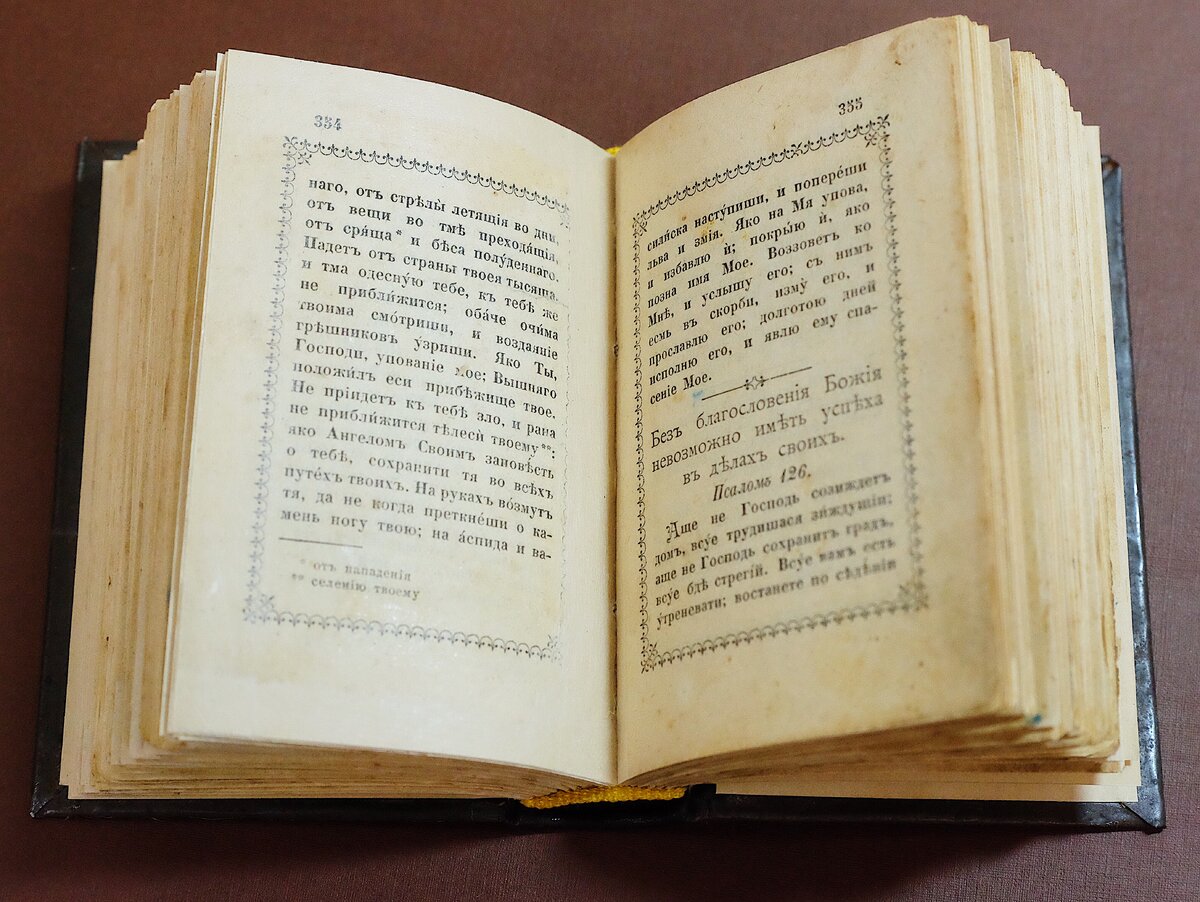 354
наго, отъ стрѣлы́ летя́щія во дни,
отъ вещи во тмѣ преходя́щія,
отъ сря́ща* и бѣса полу́деннаго.
Падетъ отъ страны твоея тысяща,
и тма одесну́ю тебе, къ тебѣ́ же
не прибли́жится; оба́че очи́ма
твоима смо́триши, и воздаяніе
грѣшниковъ у́зриши. Яко Ты,
Господи, упованіе мое; Вышняго
положи́лъ еси прибѣ́жище твое.
Не прі́идетъ къ тебѣ́ зло, и рана
не прибли́жится тѣлеси́ твоему**:
яко Ангеломъ Своимъ заповѣ́сть
о тебѣ́, сохранити тя во всѣхъ
путе́хъ твоихъ. На рукахъ во́змутъ
тя, да не когда преткне́ши о ка-
мень ногу твою; на а́спида и ва-
* отъ нападенія
** селенію твоему
355
сили́ска насту́пиши, и попере́ши
льва и змія. Яко на Мя упова,
и избавлю и́; покры́ю и́, яко
позна имя Мое. Воззоветъ ко
Мнѣ, и услышу его; съ нимъ
есмь въ скорби, изму́ его, и
прославлю его; долготою дней
исполню его, и явлю ему спа-
сеніе Мое.
Безъ благословенія Божія
невозможно имѣть успѣха
въ дѣлахъ своихъ.
Псаломъ 126.
Аще не Господь созиждетъ
домъ, всу́е трудишася зи́ждущіи;
аще не Господь сохранитъ градъ,
всу́е бдѣ стрегі́й. Всу́е вамъ есть
у́треневати; востанете по сѣдѣніи